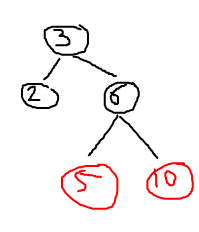 3
2 6
5 10